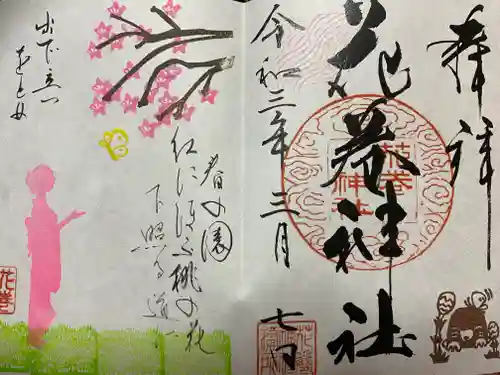 奉拝
花巻神社
花巻
神社
令和三年三月七日
春の園
紅にほふ桃の花
下照る道に
出で立つ
をとめ
花巻